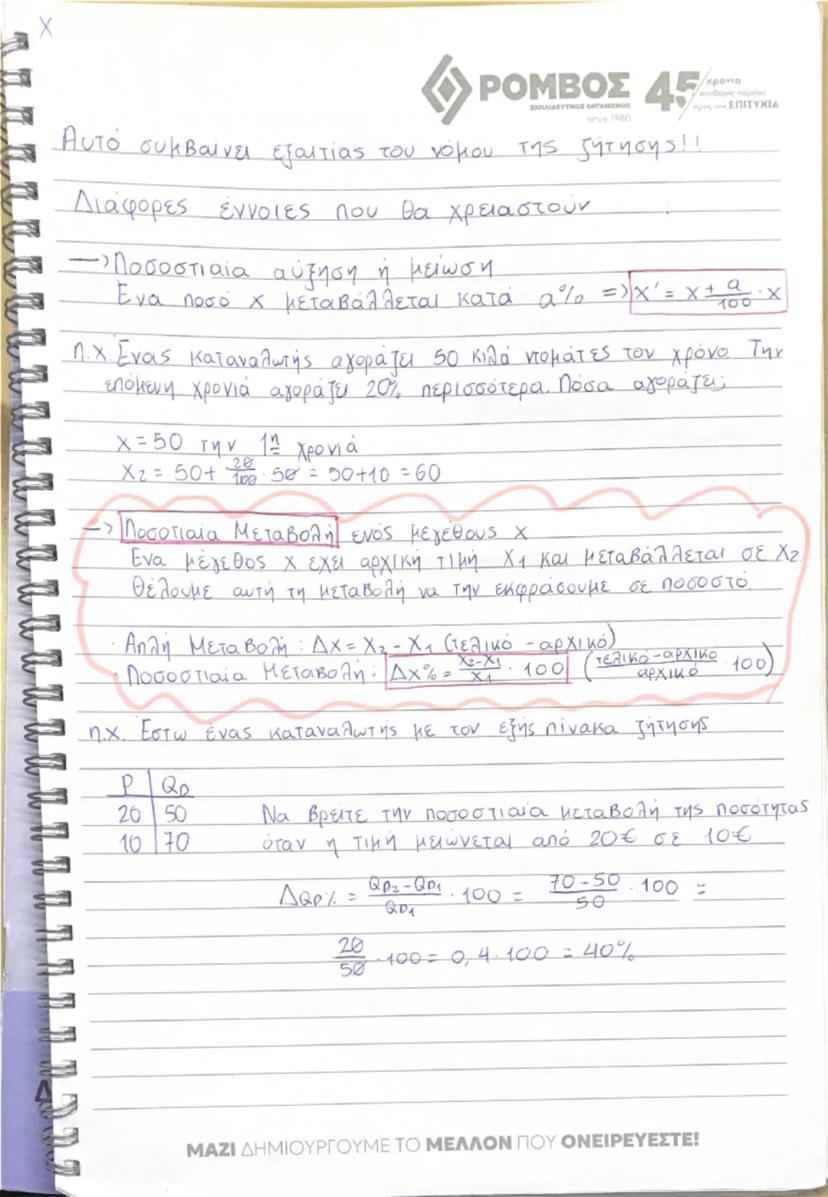 X
ΡΟΜΒΟΣ 45 χρόνια
ΕΚΠΑΙΔΕΥΤΙΚΟΣ ΟΡΓΑΝΙΣΜΟΣ σταθερής πορείας
since 1980 προς την ΕΠΙΤΥΧΙΑ
Αυτό συμβαίνει εξαιτίας του νόμου της ζήτησης!!
Διάφορες έννοιες που θα χρειαστούν
→ Ποσοστιαία αύξηση ή μείωση
Ένα ποσό x μεταβάλλεται κατά α% => x' = x ± α/100 · x
π.χ. Ένας καταναλωτής αγοράζει 50 κιλά ντομάτες τον χρόνο Την
επόμενη χρονιά αγοράζει 20% περισσότερα. Πόσα αγοράζει;
x = 50 την 1η χρονιά
x₂ = 50 + 20/100 · 50 = 50+10 = 60
→ Ποσοτιαία Μεταβολή ενός μεγέθους x
Ένα μέγεθος x έχει αρχική τιμή x₁ και μεταβάλλεται σε x₂
Θέλουμε αυτή τη μεταβολή να την εκφράσουμε σε ποσοστό.
· Απλή Μεταβολή : Δx = x₂ - x₁ (τελικό - αρχικό)
· Ποσοστιαία Μεταβολή : Δx% = x₂-x₁/x₁ · 100 (τελικό-αρχικο/αρχικό · 100)
π.χ. Έστω ένας καταναλωτής με τον εξής πίνακα ζήτησης
P | QD
20 | 50 Να βρείτε την ποσοστιαία μεταβολή της ποσότητας
10 | 70 όταν η τιμή μειώνεται από 20€ σε 10€
ΔQD% = QD₂-QD₁/QD₁ · 100 = 70-50/50 · 100 =
20/50 · 100 = 0,4 · 100 = 40%
Δ
ΜΑΖΙ ΔΗΜΙΟΥΡΓΟΥΜΕ ΤΟ ΜΕΛΛΟΝ ΠΟΥ ΟΝΕΙΡΕΥΕΣΤΕ!